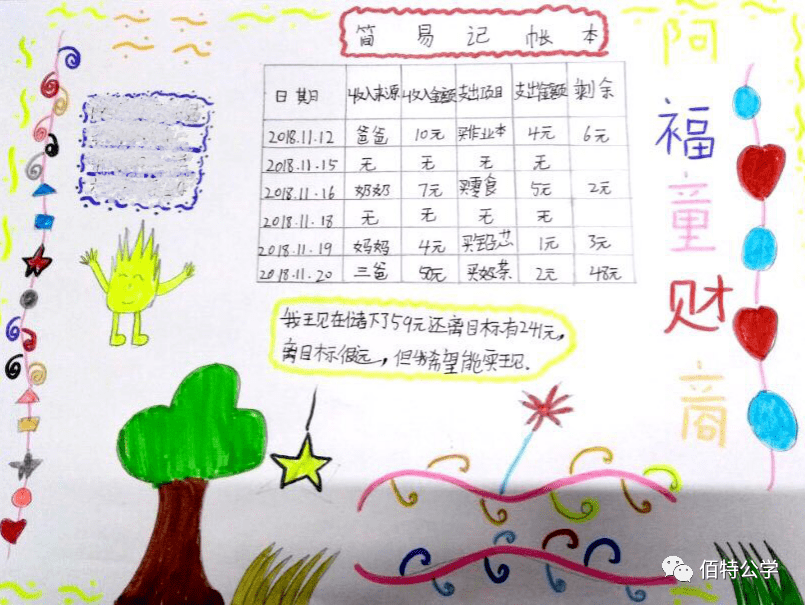 简易记帐本
日期 收入来源 收入金额 支出项目 支出金额 剩余
2018.11.12 爸爸 10元 买作业本 4元 6元
2018.11.15 无 无 无 无
2018.11.16 奶奶 7元 买零食 5元 2元
2018.11.18 无 无 无 无
2018.11.19 妈妈 4元 买铅芯 1元 3元
2018.11.20 三爸 50元 买奶茶 2元 48元
我王见在储下了59元还离目标有241元,
离目标很远,但我希望能实王见.
阿福童财商
佰特公学